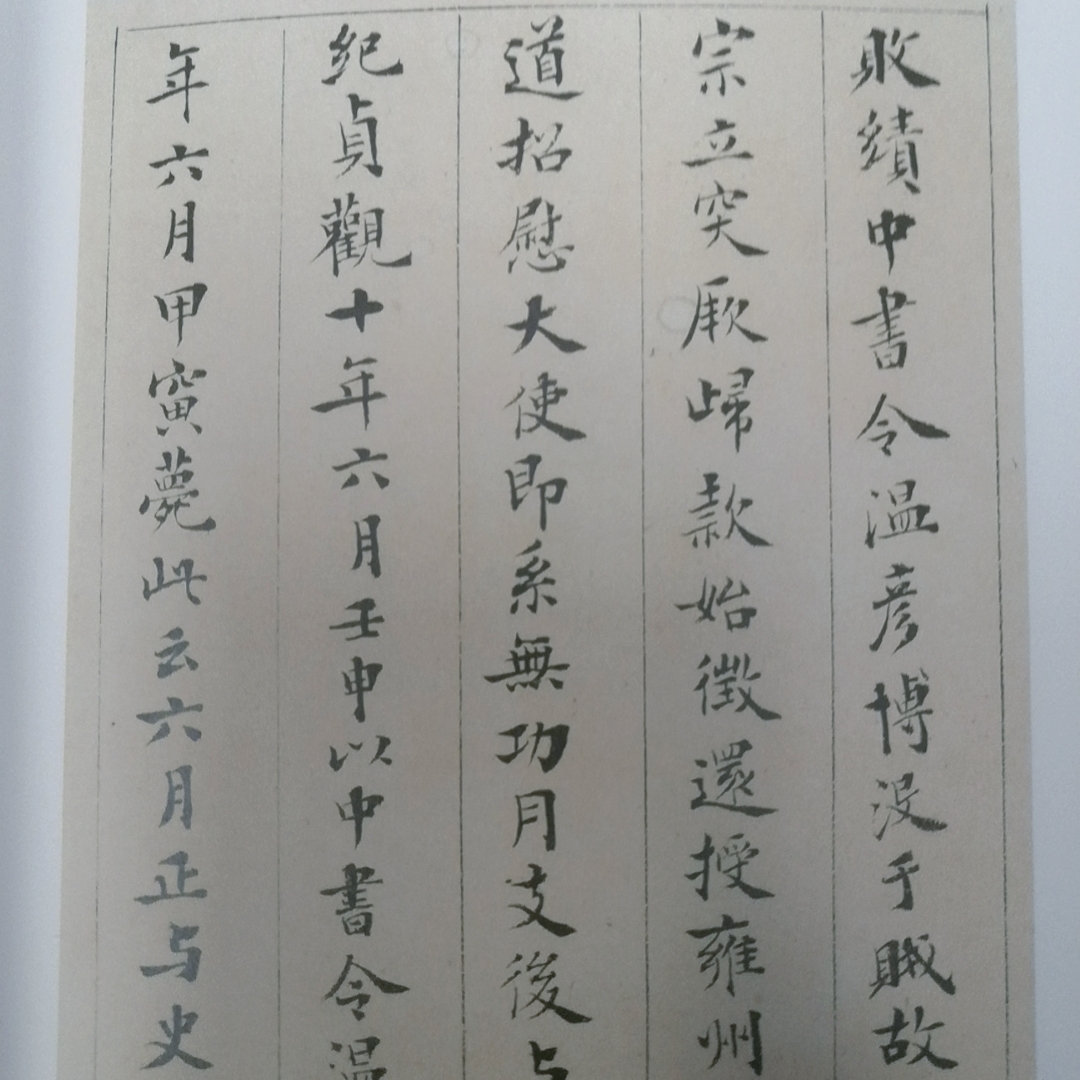 敗績中書令温彦博没于賊故
宗立突厥歸款始徵還授雍州
道招慰大使即系無功月支後与
紀貞觀十年六月壬申以中書令温
年六月甲寅薨此云六月正与史